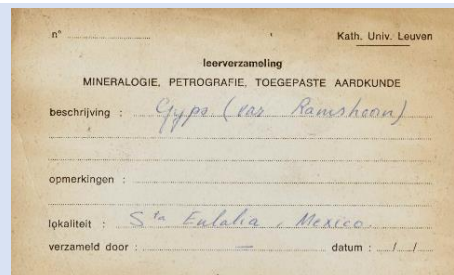 n° Kath. Univ. Leuven
leerverzameling
MINERALOGIE, PETROGRAFIE, TOEGEPASTE AARDKUNDE
beschrijving : Gyps (var Ramshoorn)
opmerkingen :
lokaliteit : Sta Eulalia, Mexico
verzameld door : — datum : / /